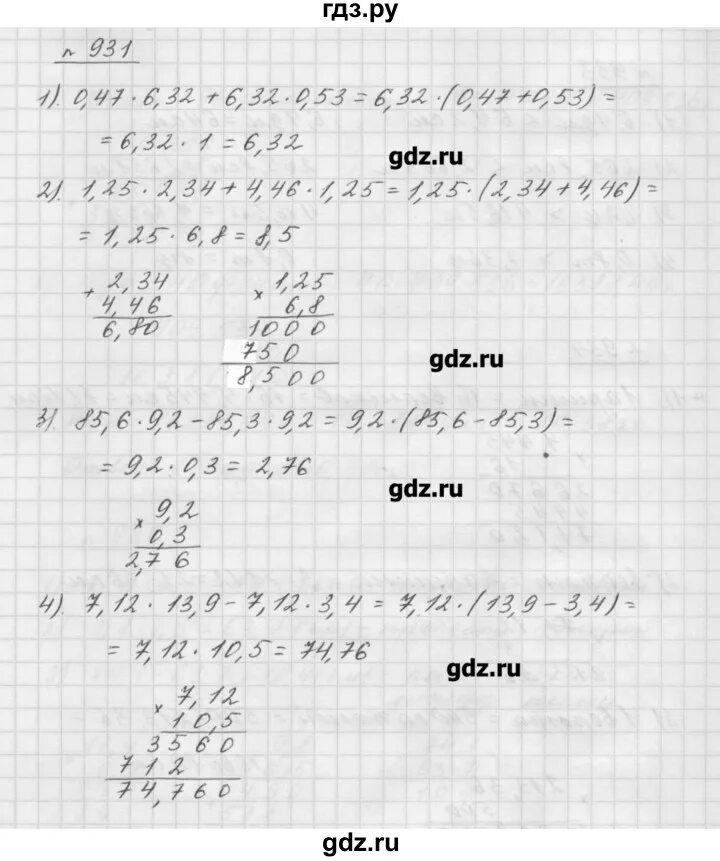 гдз.ру
№ 931
1). 0,47 · 6,32 + 6,32 · 0,53 = 6,32 · (0,47 + 0,53) =
= 6,32 · 1 = 6,32
gdz.ru
2). 1,25 · 2,34 + 4,46 · 1,25 = 1,25 · (2,34 + 4,46) =
= 1,25 · 6,8 = 8,5
+ 2,34
4,46
6,80
× 1,25
6,8
1000
750
8,500
gdz.ru
3). 85,6 · 9,2 - 85,3 · 9,2 = 9,2 · (85,6 - 85,3) =
= 9,2 · 0,3 = 2,76
gdz.ru
× 9,2
0,3
2,76
4). 7,12 · 13,9 - 7,12 · 3,4 = 7,12 · (13,9 - 3,4) =
= 7,12 · 10,5 = 74,76
gdz.ru
× 7,12
10,5
3560
712
74,760
gdz.ru